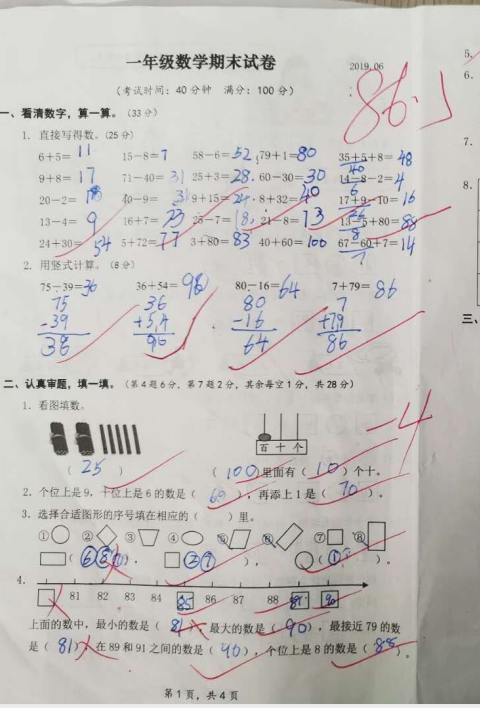 一年级数学期末试卷
2019.06
(考试时间：40分钟 满分：100分)
86.5
一、看清数字，算一算。(33分)
1. 直接写得数。(25分)
6+5=11 15-8=7 58-6=52 79+1=80 35+5+8=48
9+8=17 71-40=31 25+3=28 60-30=30 14-8-2=4
20-2= 40-9=31 9+15=24 8+32=40 17+9-10=16
13-4=9 16+7=23 25-7=18 21-8=13 13-5+80=88
24+30=54 5+72=77 3+80=83 40+60=100 67-60+7=14
2. 用竖式计算。(8分)
75-39=36 36+54=90 80-16=64 7+79=86
75 36 80 7
-39 +54 -16 +79
36 90 64 86
二、认真审题，填一填。(第4题6分，第7题2分，其余每空1分，共28分)
-4
1. 看图填数。
百 十 个
( 25 ) ( 100 )里面有( 10 )个十。
2. 个位上是9，十位上是6的数是( 69 )，再添上1是( 70 )。
3. 选择合适图形的序号填在相应的( )里。
① ② ③ ④ ⑤ ⑥ ⑦ ⑧
( ⑥⑧ )， ( ②⑦ )， ( ① )。
4.
81 82 83 84 85 86 87 88 89 90
上面的数中，最小的数是( 81 )，最大的数是( 90 )，最接近79的数
是( 81 )，在89和91之间的数是( 90 )，个位上是8的数是( 88 )。
第1页，共4页
5、
6.
7.
8.
三、